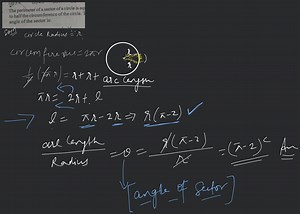 The perimeter of a sector of a circle is equal
to half the circumference of the circle.
angle of the sector is:
Soln circle Radius is r
circumference = 2πr
r
r
1/2 (2πr) = r + r + arc length
πr = 2r + l
→ l = πr - 2r ⇒ r(π-2) ✓
arc length / Radius = θ = r(π-2) / r = (π-2)ᶜ Ans
[angle of sector]